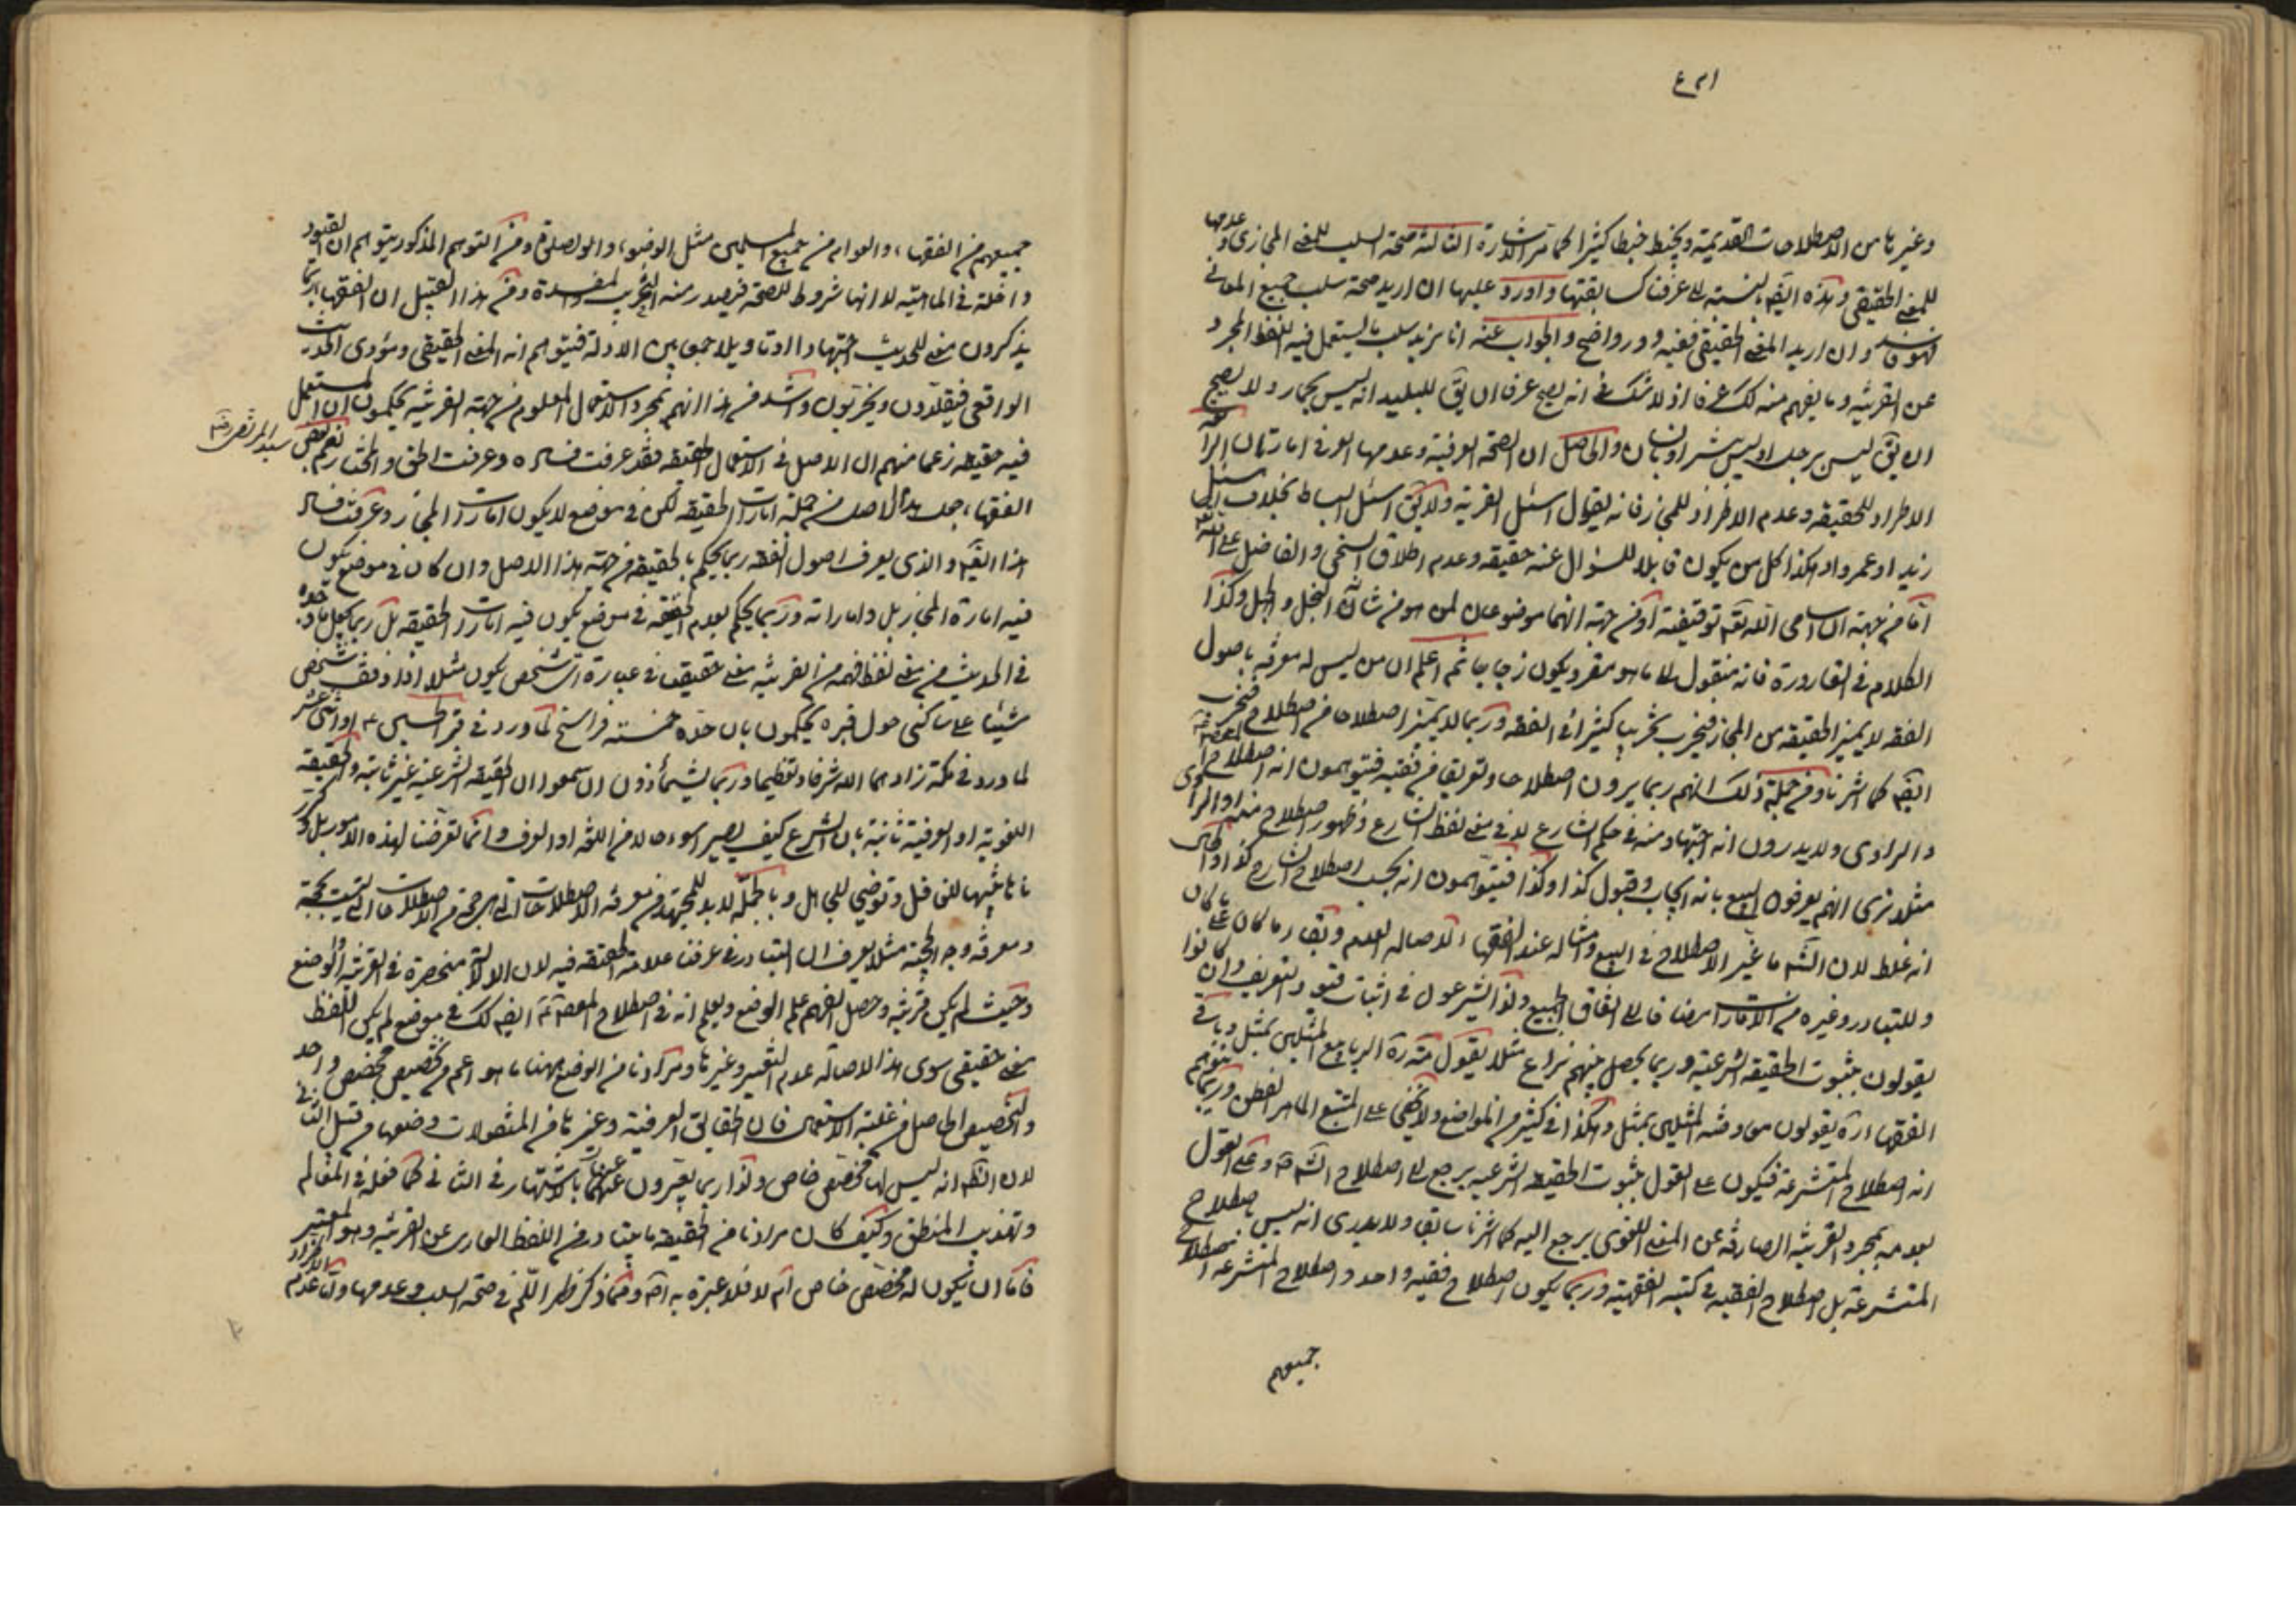 وغيرها من الاصطلاحات القديمة ويخبط خبطا كثيرا كما مر الاشارة الثالثة صحة السلب للمعنى المجازي وعدمها
للمعنى الحقيقي وهذه ايضا بالنسبة الى عرفنا كسابقتها واورد عليها ان اريد صحة سلب جميع المعاني
فهو فاسد وان اريد المعنى الحقيقي ففيه دور واضح والجواب عنه انا نريد سلب ما يستعمل فيه اللفظ المجرد
عن القرينة وما يفهم منه كك عرفا اذ لا شك في انه يصح عرفا ان يق للبليد انه ليس بحمار ولا يصح
ان يق ليس برجل او ليس ببشر او بانسان والحاصل ان الصحة العرفية وعدمها العرفي امارتان الرابعة
الاطراد للحقيقة وعدم الاطراد للمجاز فانه يقال اسئل القرية ولا يق اسئل البساط بخلاف اسئل
زيدا وعمروا وهكذا كل من يكون قابلا للسؤال عنه حقيقة وعدم اطلاق السخي والفاضل على الله تعالى
اما من جهة ان اسامي الله تعالى توقيفية او من جهة انهما موضوعان لمن هو من شانه البخل والجهل وكذا
الكلام في القارورة فانه منقول الى ما هو مقر ويكون زجاجا ثم اعلم ان من ليس له معرفة باصول
الفقه لا يميز الحقيقة من المجاز فيخرب تخريبا كثيرا في الفقه وربما لا يميز اصطلاحا من اصطلاح فيخرب
ايضا كما اشرنا ومن جملة ذلك انهم ربما يرون اصطلاحا وتعريفا من فقيه فيتوهمون انه اصطلاح
والراوي ولا يدرون انه اجتهاد منه في حكم الشارع لا في معنى لفظ الشارع وظهور اصطلاح منه او الراوي
مثلا نرى انهم يعرفون البيع بانه ايجاب وقبول كذا وكذا فيتوهمون انه بحسب اصطلاح الشارع كذا والحال
انه غلط لان الشارع ما غير الاصطلاح في البيع وامثاله عند الفقهاء لاصالة العدم وبقاء ما كان على ما كان
وللتبادر وغيره من الامارات مضافا الى اتفاق الجميع ولذا يشرعون في اثبات قيود التعريف وان كانوا
يقولون بثبوت الحقيقة الشرعية وربما يحصل منهم نزاع مثلا يقول تارة الربا بيع المثلين بمثل وباقي
الفقهاء تارة يقولون معاوضة المثلين بمثل وهكذا في كثير من المواضع ولا يخفى على المتتبع الماهر الفطن وربما يتوهم
انه اصطلاح المتشرعة فيكون على القول بثبوت الحقيقة الشرعية يرجع الى اصطلاح الشارع وعلى القول
بعدمه بمجرد القرينة الصارفة عن المعنى اللغوي يرجع اليه كما اشرنا سابقا ولا يدري انه ليس باصطلاح
المتشرعة بل اصطلاح الفقيه في كتبه الفقهية وربما يكون اصطلاح فقيه واحد واصطلاح المتشرعة اصطلاح
جميعهم
جميعهم من الفقهاء والعوام من جميع المسلمين مثل الوضوء والصلوة ومن التوهم المذكور يتوهم ان القيود
داخلة في الماهية لا انها شروط للصحة فيصدر منه التخريب والمفسدة ومن هذا القبيل ان الفقهاء ربما
يذكرون معنى للحديث اجتهادا او تاويلا جمعا بين الادلة فيتوهم انه المعنى الحقيقي ومؤدى الحديث
الواقعي فيقلدون ويخربون واشد من هذا انهم بمجرد الاستعمال المعلوم من جهة القرينة يحكمون ان المستعمل
فيه حقيقة زعما منهم ان الاصل في الاستعمال الحقيقة فقد عرفت فساده وعرفت الحق والمختار نعم بعض
سيد المرتضى
الفقهاء جعل هذا الاصل من جملة امارات الحقيقة لكن في موضع لا يكون امارات المجاز وعرفت فساد
هذا ايضا والذي يعرف اصول الفقه ربما يحكم بالحقيقة من جهة هذا الاصل وان كان في موضع يكون
فيه امارة المجاز بل واماراته وربما يحكم بعدم الحقيقة في موضع يكون فيه امارات الحقيقة بل ربما يجعل ما وجده
في الحديث من معنى لفظ فهمه من القرينة معنى حقيقيا في عبارة اي شخص يكون مثلا اذا وقف شخص
شيئا على ساكني حول قبره يحكمون بان حده خمسة فراسخ لما ورد في قبر الحسين ع او اثنى عشر
لما ورد في مكة زادهما الله شرفا وتعظيما وربما يشمأزون ان سمعوا ان الحقيقة الشرعية غير ثابتة والحقيقة
اللغوية او العرفية ثابتة بان الشرع كيف يصير اسوء حالا من اللغة او العرف وانما تعرضنا لهذه الامور بل وكررنا
تنبيها للغافل وتوضيحا للجاهل وبالجملة لا بد للمجتهد من معرفة الاصطلاحات التي هي حجة من الاصطلاحات التي ليست بحجة
ومعرفة وجه الحجية مثلا يعرف ان التبادر في عرفنا علامة الحقيقة فيه لان الدلالة منحصرة في القرينة او الوضع
وحيث لم يكن قرينة وحصل الفهم علم الوضع ويعلم انه في اصطلاح المعصوم ايضا كك في موضع لم يكن للفظ
معنى حقيقي سوى هذا لاصالة عدم التغيير وغيرها ومرادنا من الوضع ههنا ما هو اعم من تخصيص مخصص واحد
والتخصيص الحاصل من غلبة الاستعمال فان الحقائق العرفية وغيرها من المنقولات وضعها من قبيل الثاني
لان الظاهر انه ليس لها مخصص خاص ولذا ربما يعبرون عنها بالاشتهار في الثاني كما فعله في المعالم
وتهذيب المنطق وكيف كان مرادنا من الحقيقة ما يتبادر من اللفظ العاري عن القرينة وهو المعتبر
فاما ان يكون له مخصص خاص ام لا فلا عبرة به اصلا ومما ذكر ظهر اللم في صحة السلب وعدمها واما عدم الاطراد